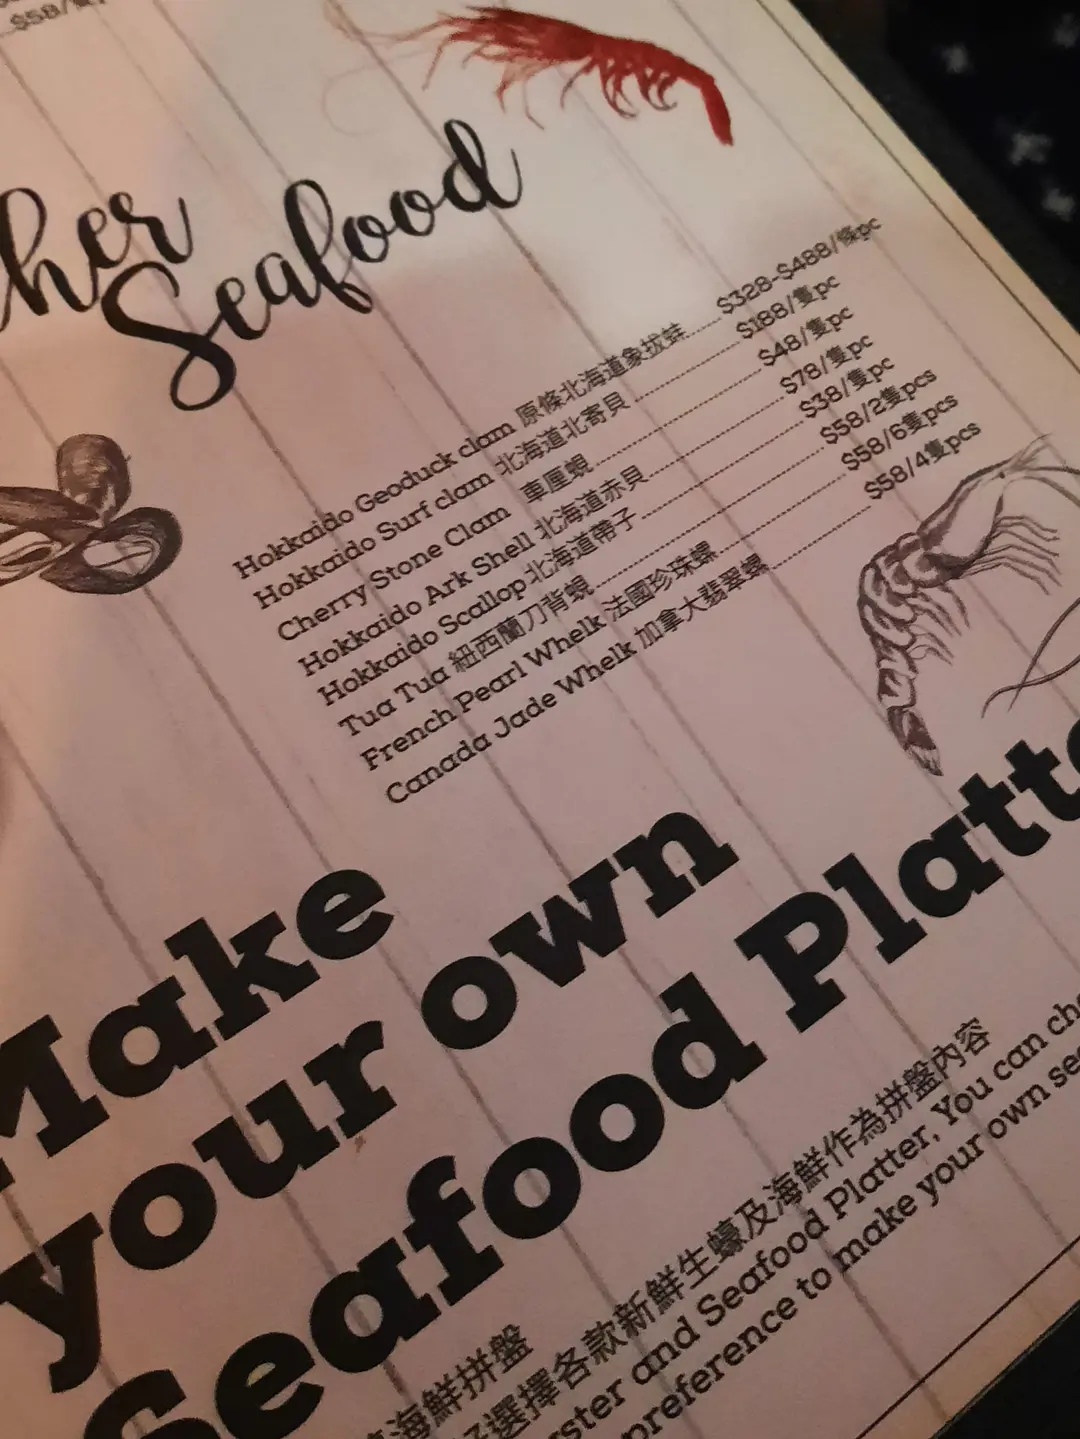 Seafood
Hokkaido Geoduck clam 原條北海道象拔蚌 $328-$488/條pc
Hokkaido Surf clam 北海道北寄貝 $188/隻pc
Cherry Stone Clam 車厘蜆 $48/隻pc
Hokkaido Ark Shell 北海道赤貝 $78/隻pc
Hokkaido Scallop 北海道帶子 $38/隻pc
Tua Tua 紐西蘭刀背蜆 $58/2隻pcs
French Pearl Whelk 法國珍珠螺 $58/6隻pcs
Canada Jade Whelk 加拿大翡翠螺 $58/4隻pcs
Make
your own
Seafood
海鮮拼盤
選擇各款新鮮生蠔及海鮮作為拼盤內容
and Seafood Platter, You can
preference to make your own